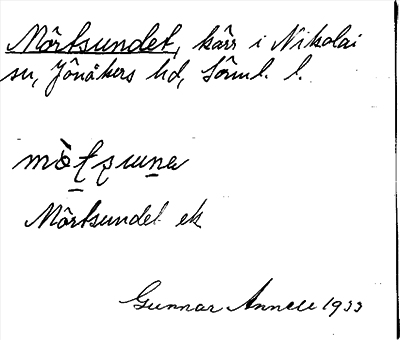 Mörtsundet, kärr i Nikolai
sn, Jönåkers hd, Sörml. l.
Mörtsundet ek
Gunnar Annell 1933